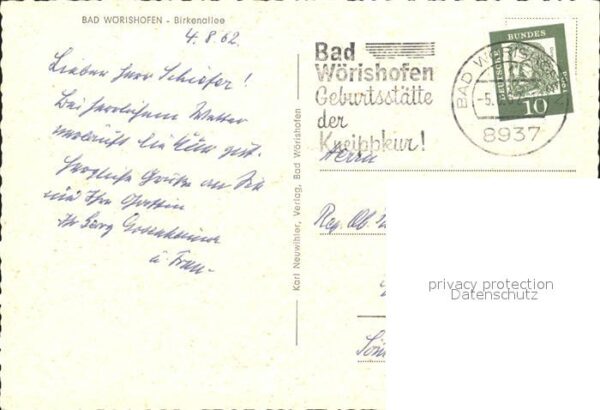 BAD WÖRISHOFEN - Birkenallee
4.8.62.
Lieber Herr Schiefer!
Bei herrlichem Wetter
verläuft die Kur gut.
Herzliche Grüße an Sie
und Ihre Gattin
Ihr Georg
u. Frau
Karl Neuwihler, Verlag, Bad Wörishofen
Bad
Wörishofen
Geburtsstätte
der
Kneippkur!
DEUTSCHE BUNDES POST
10
BAD WÖRISH
-5.
8937
Herrn
Reg. Ob.
privacy protection
Datenschutz